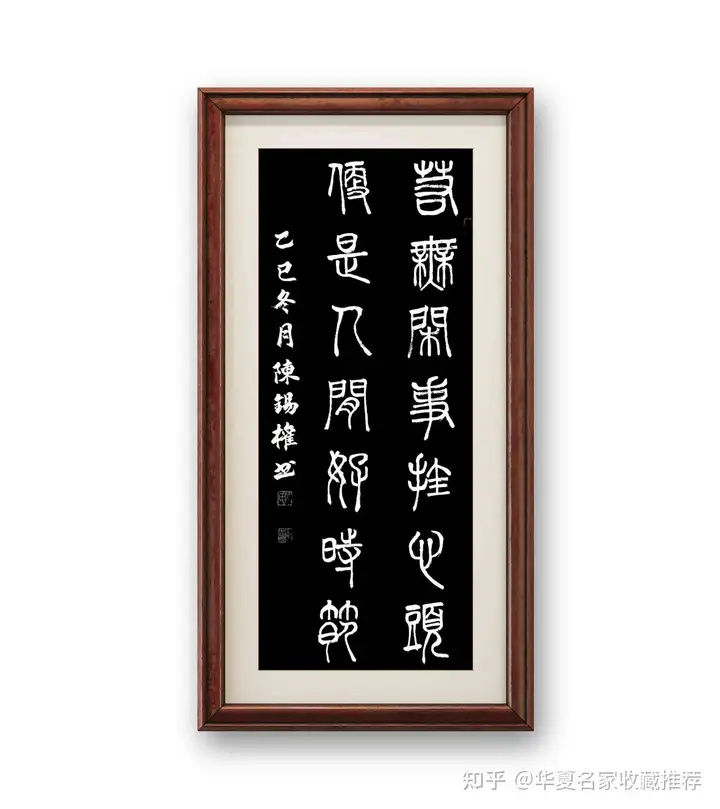 若無閑事挂心頭
便是人間好時節
乙巳冬月陳錫權書
知乎 @华夏名家收藏推荐